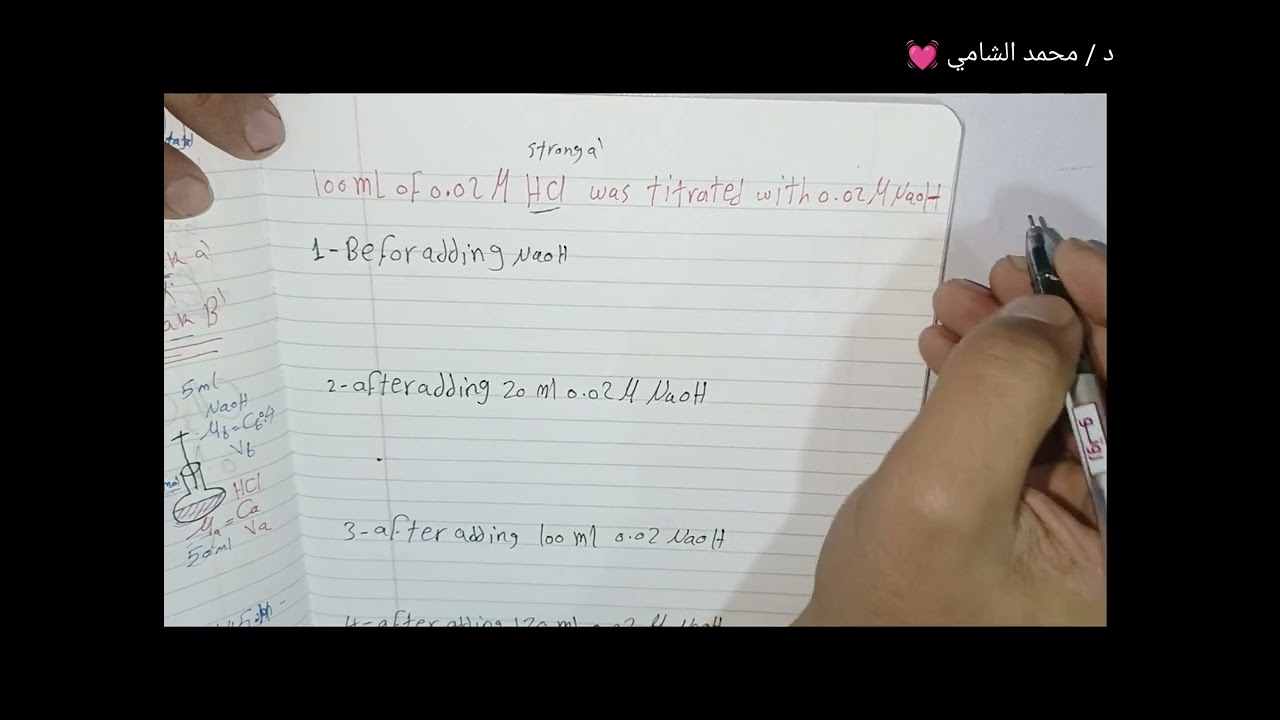 د / محمد الشامي 💓
strong a'
100 ml of 0.02 M HCl was titrated with 0.02 M NaOH
1-Befor adding NaOH
2-after adding 20 ml 0.02 M NaOH
3-after adding 100 ml 0.02 NaOH
4-after adding 120 ml 0.02 M NaOH
B'
5ml
NaOH
Mb=Cb
Vb
HCl
Ma=Ca
Va
50ml
روتو